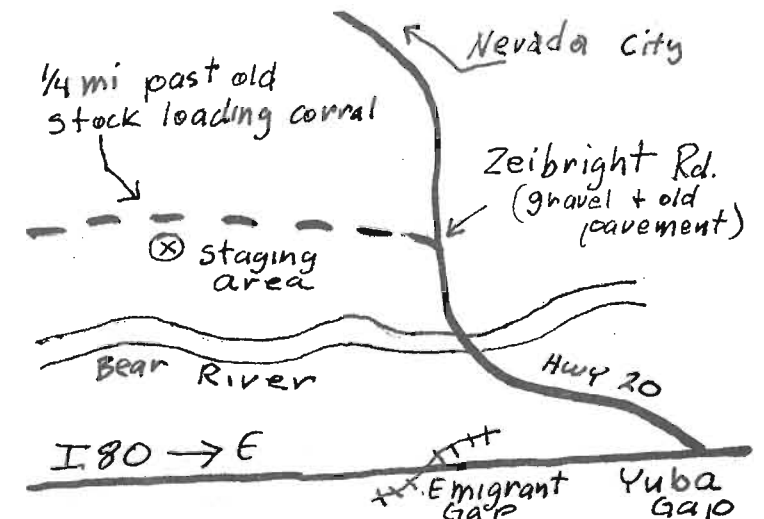 Nevada City
1/4 mi past old
stock loading corral
Zeibright Rd.
(gravel + old
pavement)
Ⓧ staging
area
Bear River
Hwy 20
I80 → E
Emigrant
Gap
Yuba
Gap